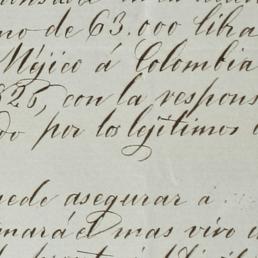 mo de 63.000 libra
Méjico á Colombia
826, con la respons
do por los legitimos
uede asegurar a
mará el mas vivo